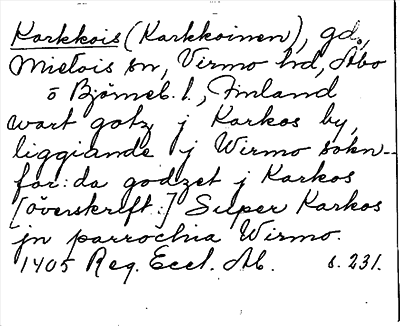 Karkkois (Karkkoinen), gd.,
Mietois sn, Virmo hd, Åbo
o Björneb. l., Finland
wart gotz j Karkos by,
liggiande j Wirmo sokn--
for:da godzet j Karkos
[överskrift:] Super Karkos
jn parrochia Wirmo.
1405 Reg. Eccl. Ab. s. 231.